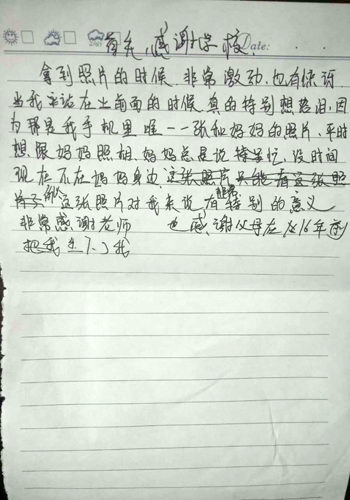 首先,感谢学校 Date:
拿到照片的时候,非常激动,也有惊讶
当我站在上前面的时候,真的特别想落泪,因
为那是我手机里唯一一张和妈妈的照片,平时
想跟妈妈照相,妈妈总是说特忙,没时间
现在不在妈妈身边,这张照片
这张照片对我来说有非常特别的意义
非常感谢老师 也感谢父母在 16年前
把我生下了我